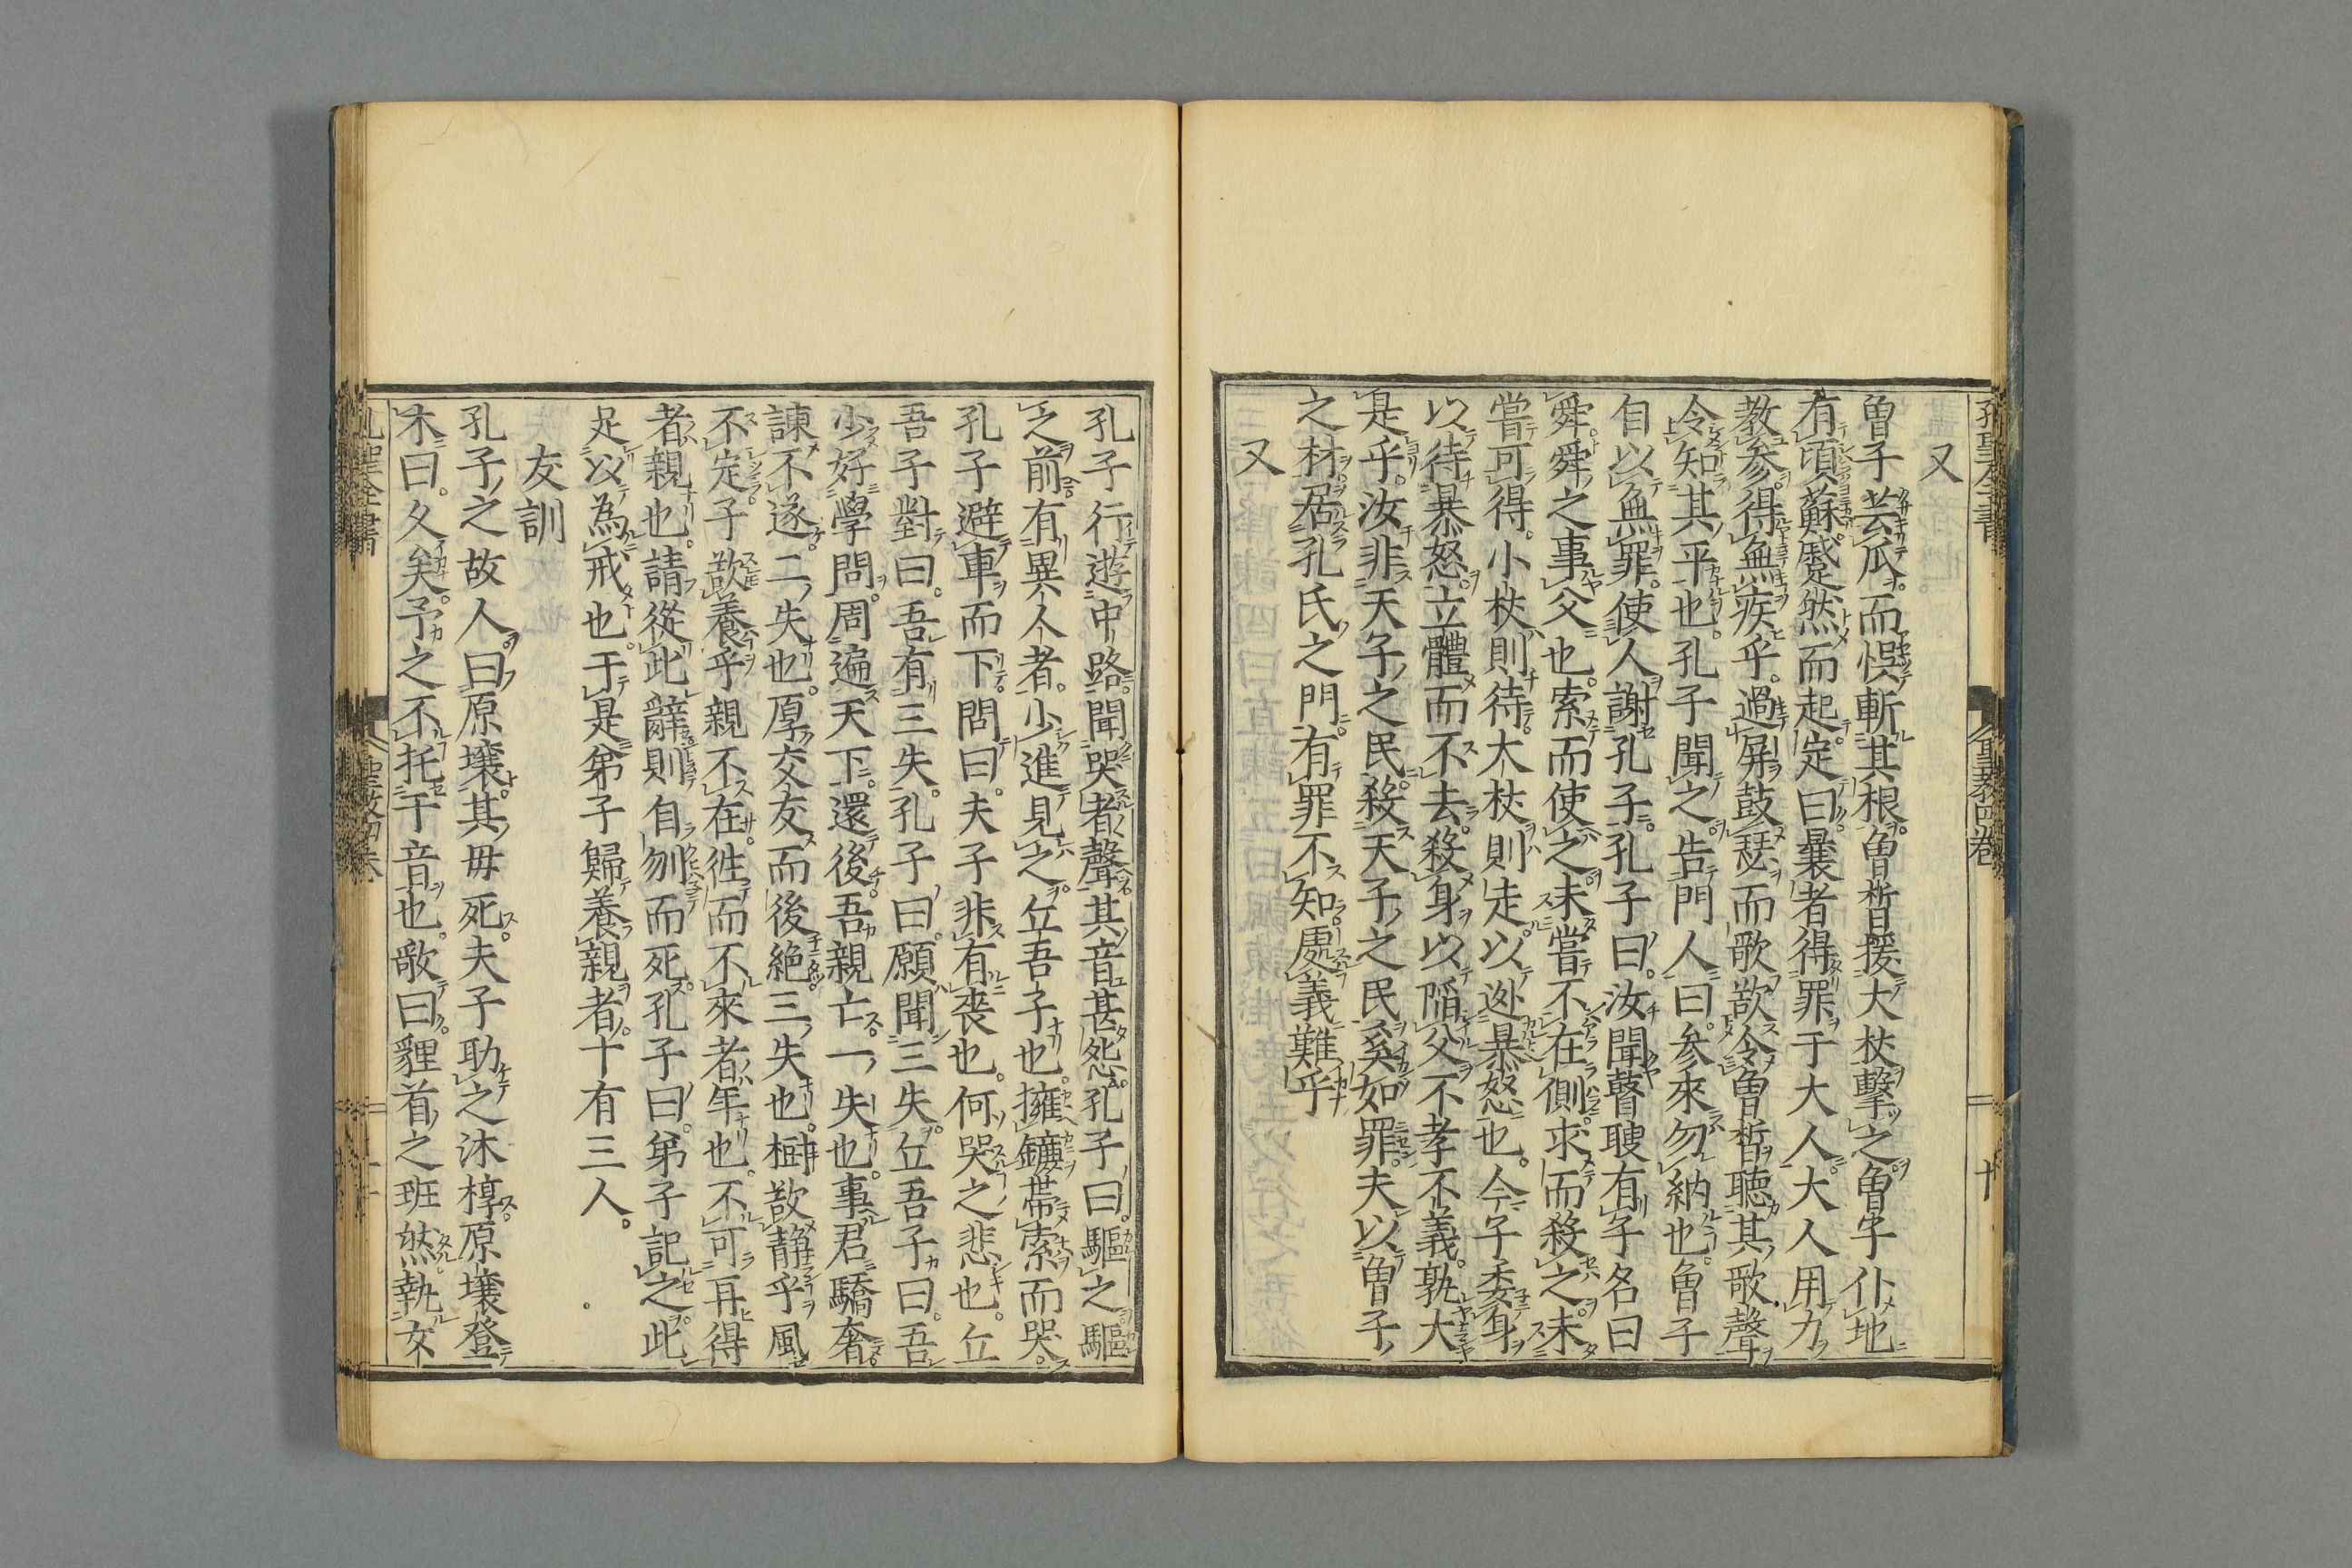 又
曾子芸瓜。而悞斬其根。曾晳援大杖擊之曾子仆地
有頃蘇。蹙然而起。定曰。曩者得罪于大人。大人用力
教參。得無疾乎。過屏鼓瑟而歌欲令曾晳聽其歌聲
令知其平也。孔子聞之。告門人曰。參來勿納也。曾子
自以無罪。使人謝孔子。孔子曰。汝聞瞽瞍有子名曰
舜。舜之事父也。索而使之。未嘗不在側。求而殺之。未
嘗可得。小杖則待。大杖則走。以迯暴怒也。今子委身
以待暴怒。立體而不去。殺身以陷父。不孝不義。孰大
是乎。汝非天子之民。殺天子之民奚如罪。夫以曾子
之材。居孔氏之門。有罪不知處義難乎
又
孔子行遊中路。聞哭者聲。其音甚怨。孔子曰。驅之驅
之前有異人者。少進見之。丘吾子也。擁鐮帶索而哭。
孔子避車而下。問曰。夫子非有喪也。何哭之悲也。丘
吾子對曰。吾有三失。孔子曰。願聞三失。丘吾子曰。吾
少好學問。周遍天下。還後。吾親亡。一失也。事君驕奢
諫不遂。二失也。厚交友而後絕。三失也。樹欲静乎風
不定。子欲養乎親不在。徃而不來者。年也。不可再得
者親也。請從此辭。則自刎而死。孔子曰。弟子記之。此
足以為戒也。于是弟子歸養親者。十有三人。
友訓
孔子之故人。曰原壤。其毋死。夫子助之沐槨。原壤登
木曰。久矣。予之不托于音也。歌曰。貍首之班然。執女
孔聖全書
聖教四卷
十